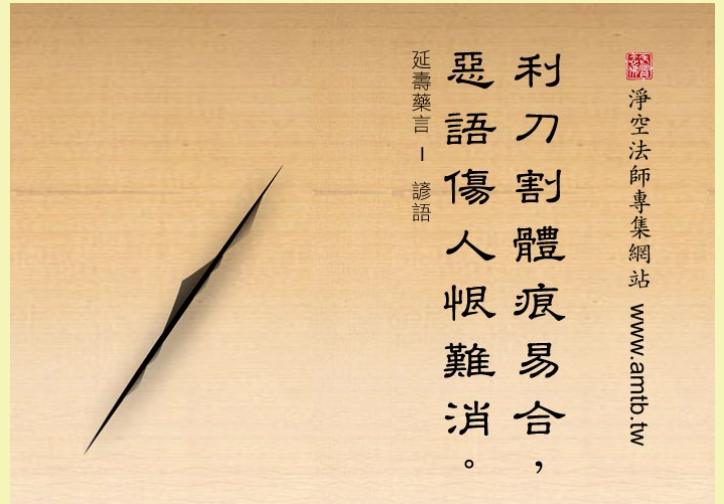 淨空法師專集網站 www.amtb.tw
利刀割體痕易合，
惡語傷人恨難消。
延壽藥言 - 諺語